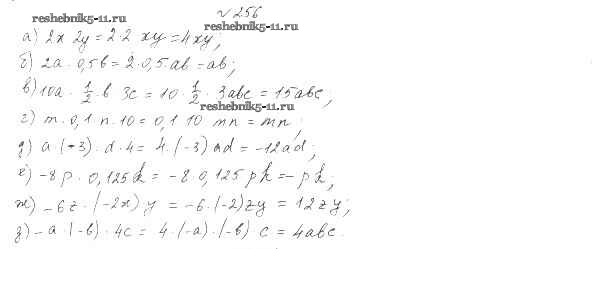 №256
reshebnik5-11.ru
reshebnik5-11.ru
а) 2x 2y = 2·2 xy = 4xy;
б) 2a · 0,5b = 2·0,5·ab = ab;
в) 10a · 1/2 · b 3c = 10 · 1/2 · 3abc = 15abc;
reshebnik5-11.ru
г) m·0,1 n·10 = 0,1 10 mn = mn;
д) a·(-3)·d·4 = 4·(-3) ad = -12ad;
е) -8p · 0,125k = -8·0,125pk = -pk;
ж) -6z·(-2x)·y = -6·(-2)zy = 12zy;
з) -a·(-b)·4c = 4·(-a)·(-b)·c = 4abc.